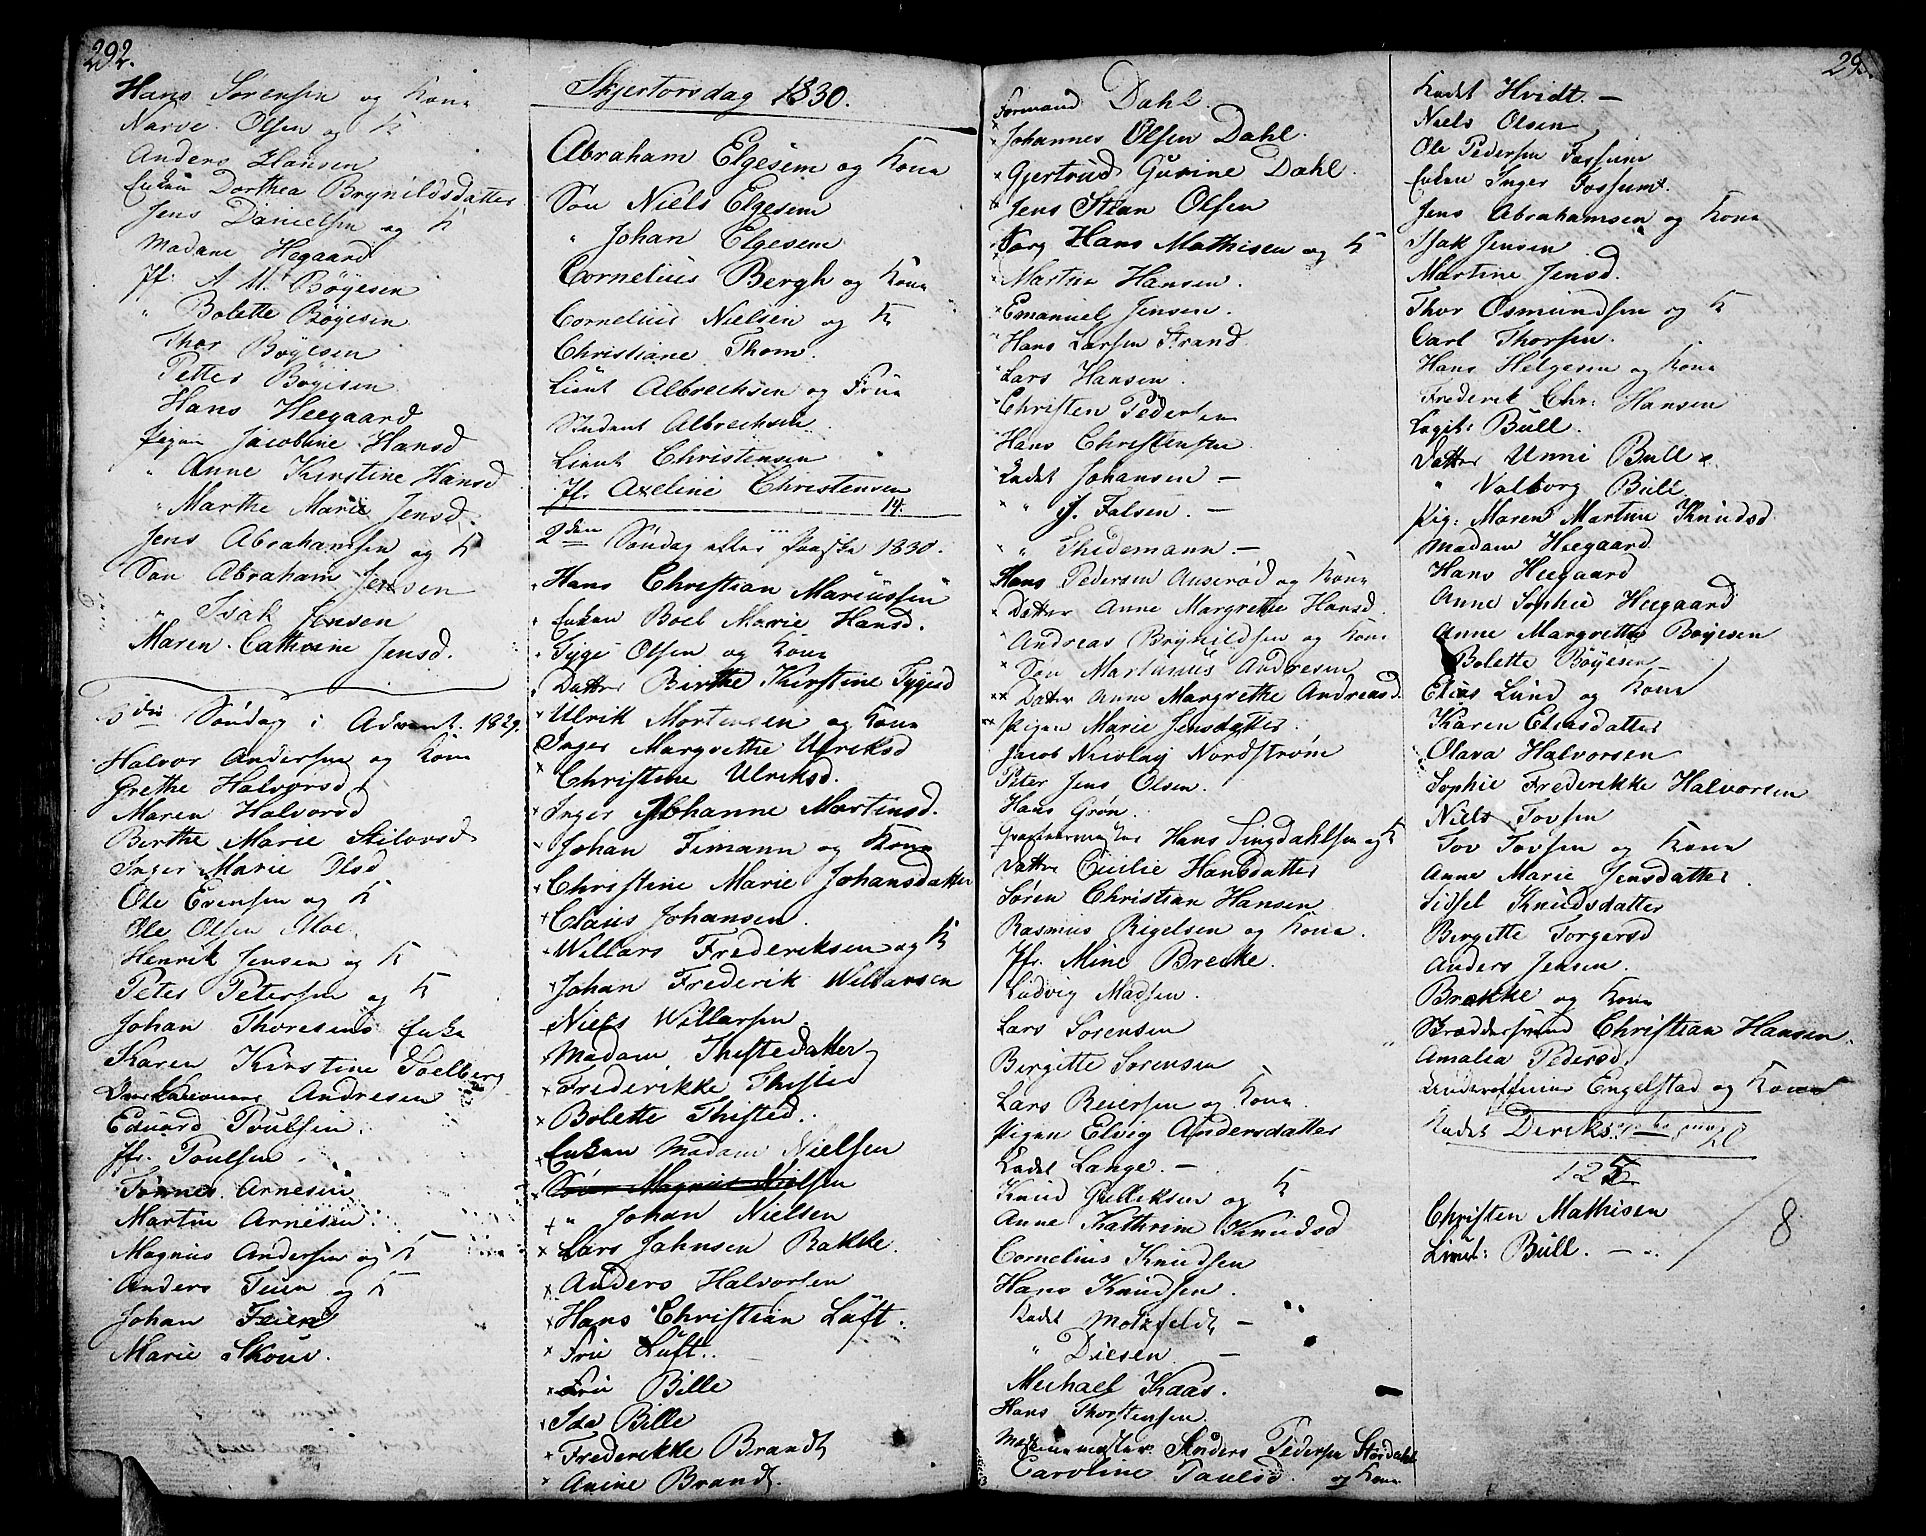 292.
Hans Sørensen og Kone
Narve Olsen og K
Anders Hansen
Enken Dorthea Brynildsdatter
Jens Danielsen og K
Madame Heegaard
Jfr. A. M. Bøyesen
" Bolette Bøyesen
Thor Bøyesen
Petter Bøyesen
Hans Heegaard
Pigen Jacobine Hansd
" Anne Kirstine Hansd
" Marthe Marie Jensd.
Jens Abrahamsen og K
Søn Abraham Jensen
" Isak Jensen
Maren Cathrine Jensd.
3die Søndag i Advent 1829.
Halvor Andersen og Kone
Grethe Halvorsd
Maren Halvorsd
Berthe Marie
Inger Marie Olsd
Ole Evensen og K
Ole Olsen Moe.
Henrik Jensen og K
Peter Petersen og K
Johan Thoresens Enke
Karen Kirstine Soelberg
Andresen
Eduard Poulsen.
Jfr. Poulsen
Tønnes Arnesen
Martin Arnesen
Magnus Andersen og K
Anders Feien og K
Johan Feien
Marie Skou.
Skjertorsdag 1830.
Abraham Elgesem og Kone
Søn Niels Elgesem
" Johan Elgesem
Cornelius Bergh og Kone
Cornelius Nielsen og K
Christiane Thom.
Lieut Albrechsen og Frue
Student Albrechsen
Lieut Christensen
Jfr. Axeline Christensen
14.
2den Søndag efter Paaske 1830.
Hans Christian Mariussen
Enken Boel Marie Hansd.
Tyge Olsen og Kone
Datter Birthe Kirstine Tygesd
Ulrik Mortensen og Kone
Inger Margrethe Ulriksd
Christine Ulriksd.
Inger Johanne Mortensd.
Johan Timann og Kone
Christine Marie Johansdatter
Claus Johansen
Willars Frederiksen og K
Johan Frederik Willarsen
Niels Willarsen
Madam Thistedatter
Frederikke Thisted
Bolette Thisted.
Enken Madam Nielsen
Søn Magnus Nielsen
" Johan Nielsen
Lars Jahnsen Bakke.
Anders Halvorsen
Hans Christian Luft.
Frü Luft.
Frü Bille
Ida Bille
Frederikke Brandt
Anine Brandt.
29
Formand Dahl.
Johannes Olsen Dahl.
Gjertrud Gurine Dahl.
Jens Stan Olsen
Hans Mathisen og K
Martin Hansen.
Emanuel Jensen.
Hans Larsen Strand
Lars Hansen
Christen Pedersen
Hans Christensen
Kadet Johansen —
" J. Falsen. —
" Thidemann —
Hans Pedersen Auserød og Kone
Datter Anne Margrethe Hansd.
Andreas Brynildsen og Kone
Søn Martinus Andresen
Datter Anne Margrethe Andreasd.
Pigen Marie Jensdatter
Jacob Nicolay Nordstrøm
Peter Jens Olsen.
Hans Grøn.
Hans Lingdahlsen og K
Datter Cicilie Hansdatter
Søren Christian Hansen
Rasmus Rigelsen og Kone.
Jfr. Mine Brecke.
Ludvig Madsen.
Lars Sørensen
Bergitte Sørensen
Lars Reiersen og Kone
Pigen Elvig Andersdatter
Kadet Lange. —
Knud Gulliksen og K
Anne Kathrine Knudsd
Cornelius Knudsen
Hans Knudsen.
Kadet Motzfeldt —
" Diesen —
Michael Kaas.
Hans Thorstensen
Anders Pedersen Stordahl
Caroline Paulsd. og Kone
Kadet Hvidt. —
Niels Olsen
Ole Pedersen Fossum
Enken Inger Fossum.
Jens Abrahamsen og Kone
Isak Jensen
Martine Jensd.
Thor Osmundsen og K
Carl Thorsen.
Hans Helgesen og Kone
Frederik Chr. Hansen
Capit: Bull.
Datter Unni Bull
" Valborg Bull
Pig: Maren Martine Knudsd
Madam Heegaard
Hans Heegaard
Anne Sophie Heegaard
Anne Margrethe Bøyesen
Bolette Bøyesen
Elias Lund og Kone
Karen Eliasdatter
Olava Halvorsen
Sophie Frederikke Halvorsen
Niels Tovsen
Tov Tovsen og Kone
Anne Marie Jensdatter.
Sissel Knudsdatter
Bergitte Torgersd
Anders Jensen.
Brække og Kone
Skræddersvend Christian Hansen.
Amalia Pedersd.
Underofficeer Engelstad og Kone
Kadet Deriks. —
125
Christen Mathisen
Lieut: Bull. —
8